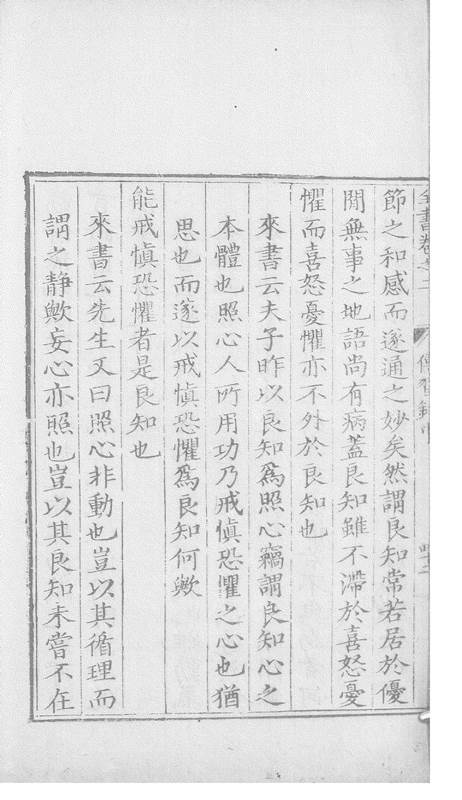 全書卷之二 傳習錄中 四二
節之和感而遂通之妙矣然謂良知常若居於優
閒無事之地語尚有病蓋良知雖不滯於喜怒憂
懼而喜怒憂懼亦不外於良知也
來書云夫子昨以良知爲照心竊謂良知心之
本體也照心人所用功乃戒慎恐懼之心也猶
思也而遂以戒慎恐懼爲良知何歟
能戒慎恐懼者是良知也
來書云先生又曰照心非動也豈以其循理而
謂之靜歟妄心亦照也豈以其良知未嘗不在